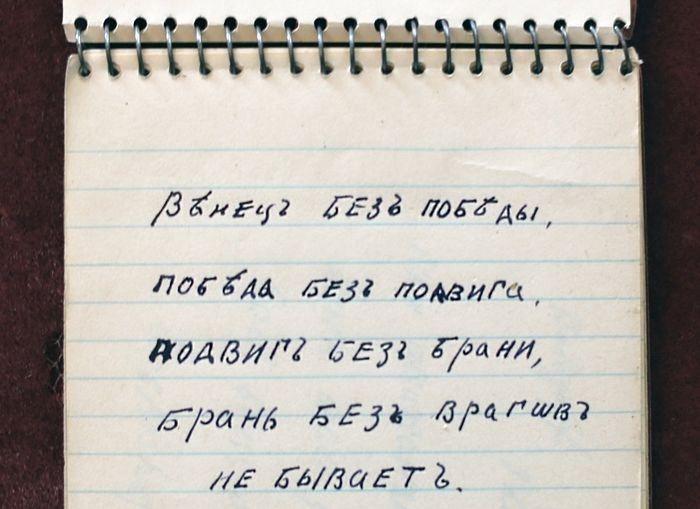 Вѣнецъ безъ побѣды,
побѣда безъ подвига,
подвигъ безъ брани,
брань безъ враговъ
не бываетъ.